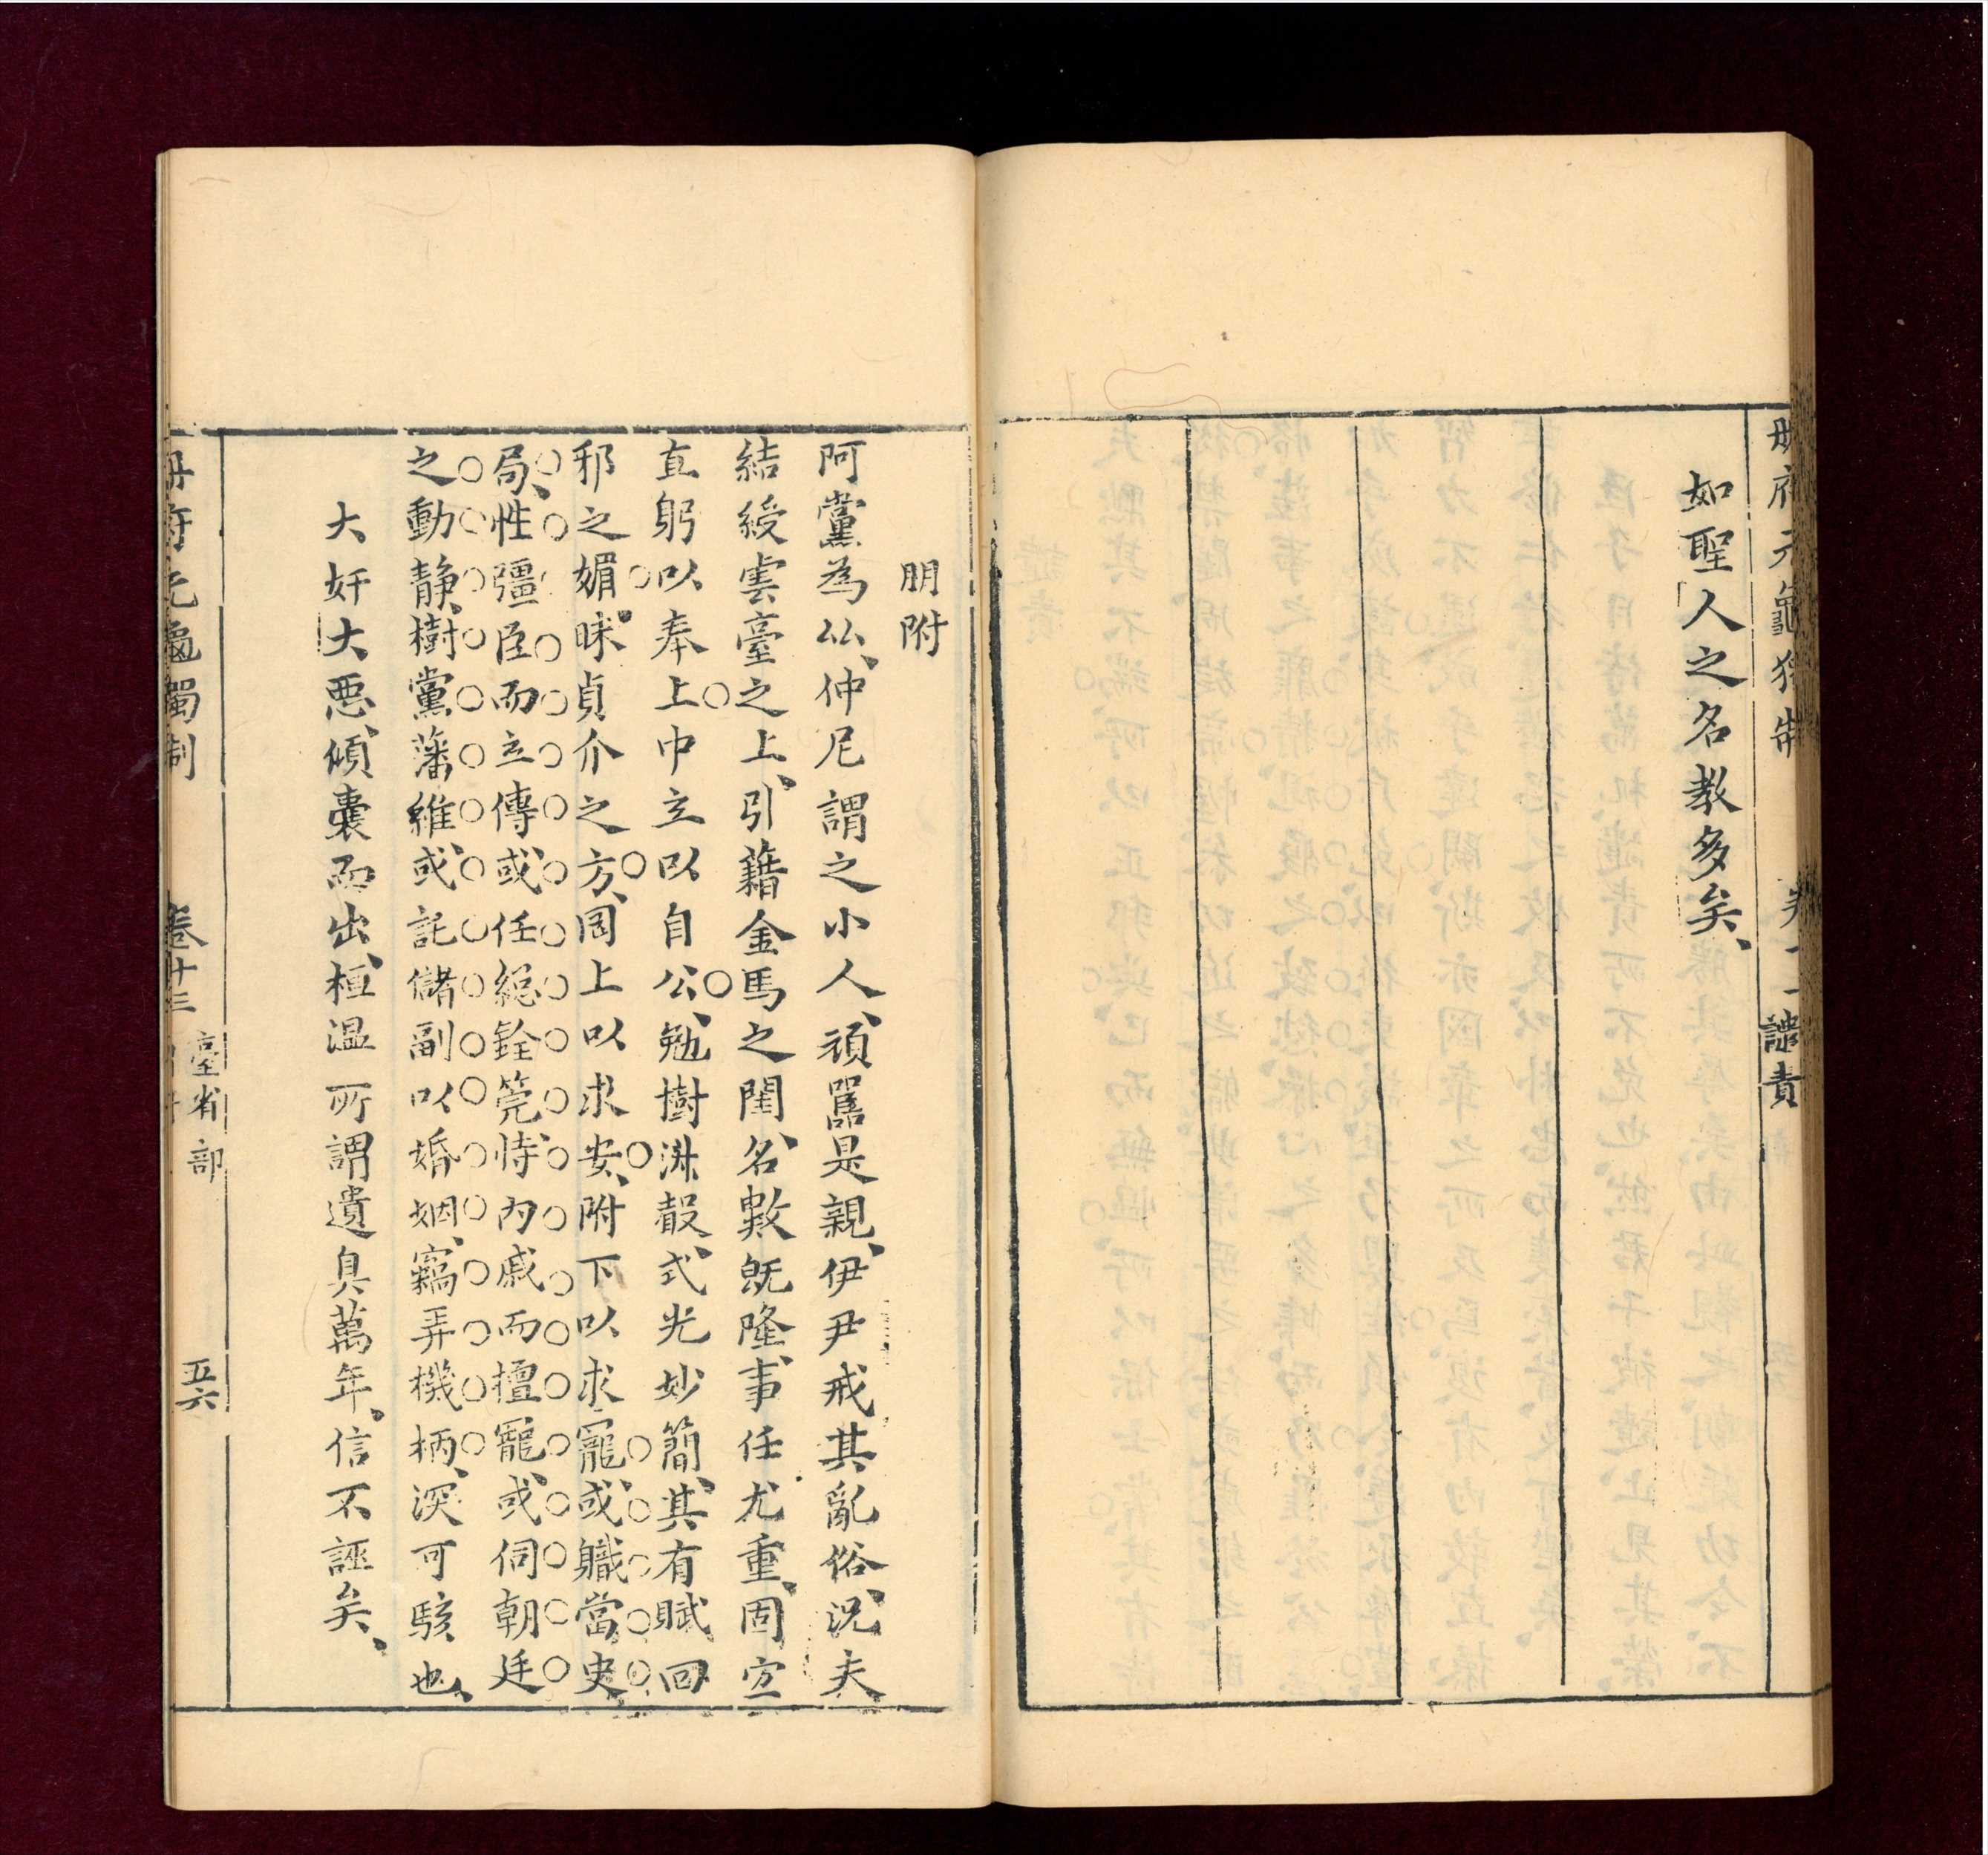 冊府元龜獨制
譴責
如聖人之名教多矣、
朋附
阿黨為㕥、仲尼謂之小人、頑嚚是親、伊尹戒其亂俗、況夫
結綬雲臺之上、引藉金馬之閨、名數既隆、事任尤重、固宜
直躬以奉上中立以自公、勉樹淋嗀、式光妙簡、其有賦回
邪之媚昧貞介之方、罔上以求安、附下以求寵、或職當史
局、性彊臣而立傳、或任總銓筦、恃內戚而擅寵、或伺朝廷
之動靜、樹黨藩維、或託儲副以婚姻、竊弄機柄、深可駭也、
大奸大惡、傾囊而出、桓溫所謂遺臭萬年、信不誣矣、
冊府元龜獨制
卷十三
臺省部
五六